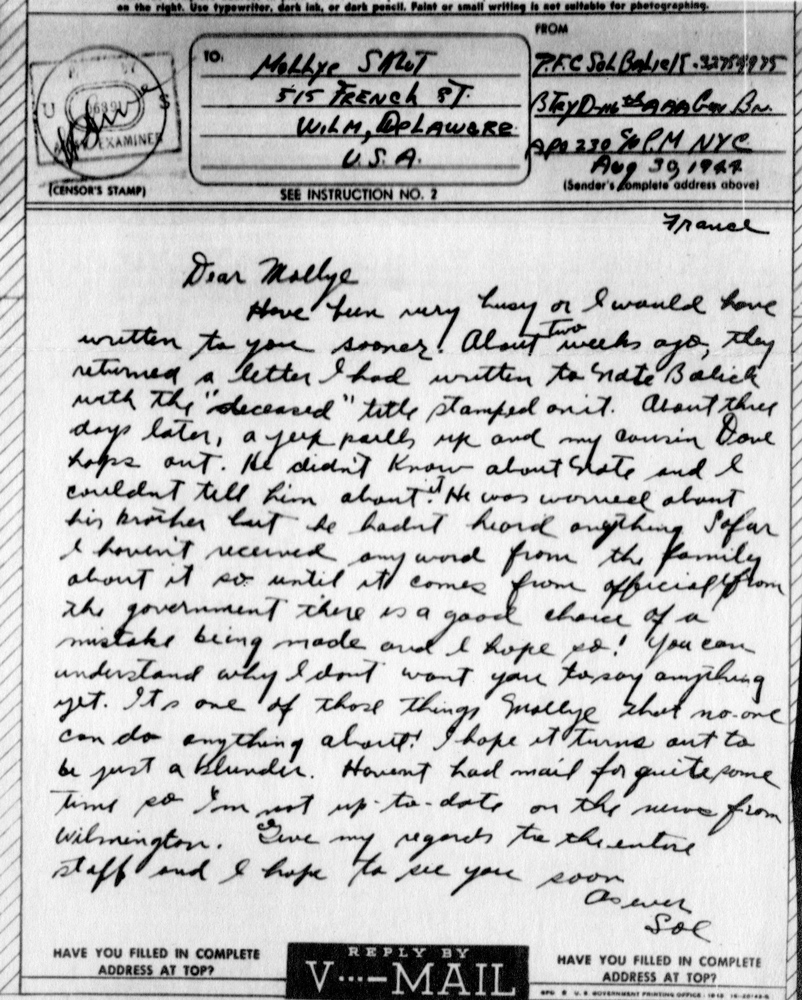 on the right. Use typewriter, dark ink, or dark pencil. Faint or small writing is not suitable for photographing.
TO:
Mollye Sklut
515 FRENCH ST.
WILM, DELAWARE
U.S.A.
FROM
P.F.C Sol Balick - 32759975
Btry D
AAA Gun Bn.
APO 230 % P.M NYC
Aug 30, 1944
(Sender's complete address above)
U
S
EXAMINER
(CENSOR'S STAMP)
SEE INSTRUCTION NO. 2
France
Dear Mollye
Have been very busy or I would have
written to you sooner! About two weeks ago, they
returned a letter I had written to Nate Balick
with the "deceased" title stamped on it. About three
days later, a jeep pulls up and my cousin Dave
hops out. He didn't know about Nate and I
couldn't tell him about it. He was worried about
his brother but he hadn't heard anything. So far
I haven't received any word from the family
about it so until it comes from official from
the government there is a good chance of a
mistake being made and I hope so! You can
understand why I don't want you to say anything
yet. It's one of those things Mollye that no-one
can do anything about! I hope it turns out to
be just a blunder. Havent had mail for quite some
time so I'm not up-to-date on the news from
Wilmington. Give my regards to the entire
staff and I hope to see you soon
As ever
Sol
HAVE YOU FILLED IN COMPLETE
ADDRESS AT TOP?
REPLY BY
V···—MAIL
HAVE YOU FILLED IN COMPLETE
ADDRESS AT TOP?
U.S. GOVERNMENT PRINTING OFFICE